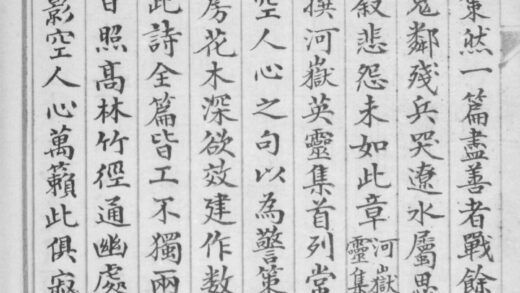 策然一篇盡善者戰餘
鬼鄰殘兵哭遼水屬思
敘悲怨未如此章河嶽
靈集
撰河嶽英靈集首列常
空人心之句以為警策
房花木深欲效建作数
此詩全篇皆工不獨兩
日照髙林竹徑通幽處
影空人心萬籟此俱寂